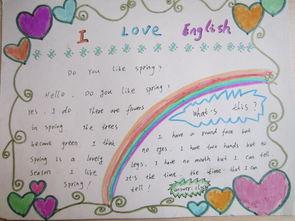 I LOVE English
Do you like spring?
Hello. Do you like spring?
Yes, I do. There are flowers
in spring. The trees
become green. I think
Spring is a lovely
Season. I like
Spring!
What's this?
I have a round face but
no eyes. I have two hands but no
legs. I have no mouth but I can tell
the time. the time that I can
tell!